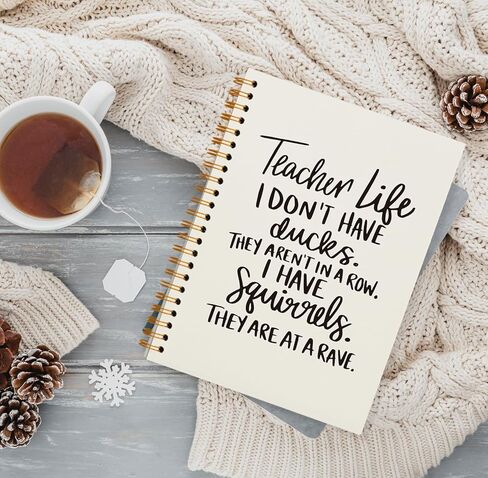 Teacher Life
I DON'T HAVE
ducks.
THEY AREN'T IN A ROW.
I HAVE
Squirrels.
THEY ARE AT A RAVE.